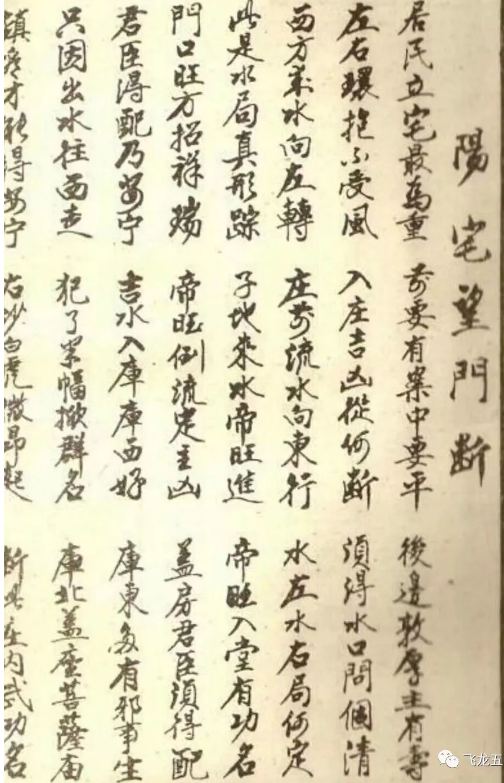 陽宅望門断
居民立宅最為重 前要有案中要平 後邊敦厚主有壽
左右環抱不受風 入庄吉凶從何断 須得水口問個清
西方來水向左轉 庄前流水向東行 水左水右局何定
此是水局真形踪 子地來水帝旺進 帝旺入堂有功名
門口旺方招祥瑞 帝旺倒流定主凶 盖房君臣須得配
君臣得配乃安宁 吉水入庫庫西好 庫東多有邪事生
只因出水往西走 犯了幅群名 庫北盖座菩薩庙
才能得安宁 右沙白虎昂起 断其庄内武功名
飞龙五